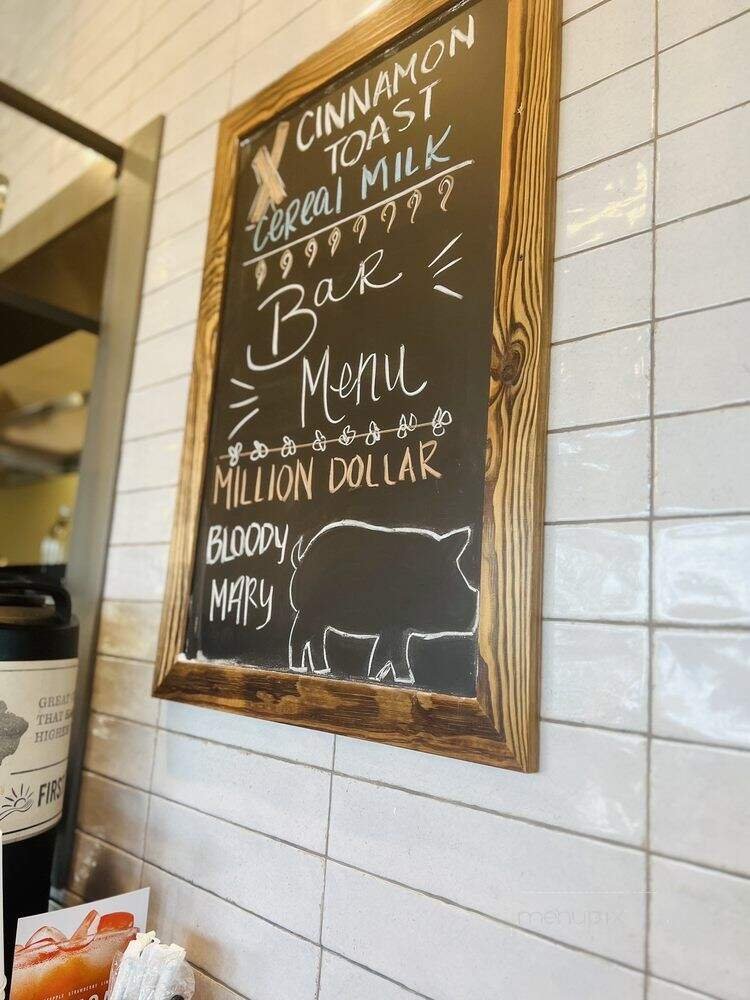 CINNAMON
TOAST
CEREAL MILK
Bar
Menu
MILLION DOLLAR
BLOODY
MARY
GREAT
THAT
HIGHE
FIRS
STRAWBERRY
menupix